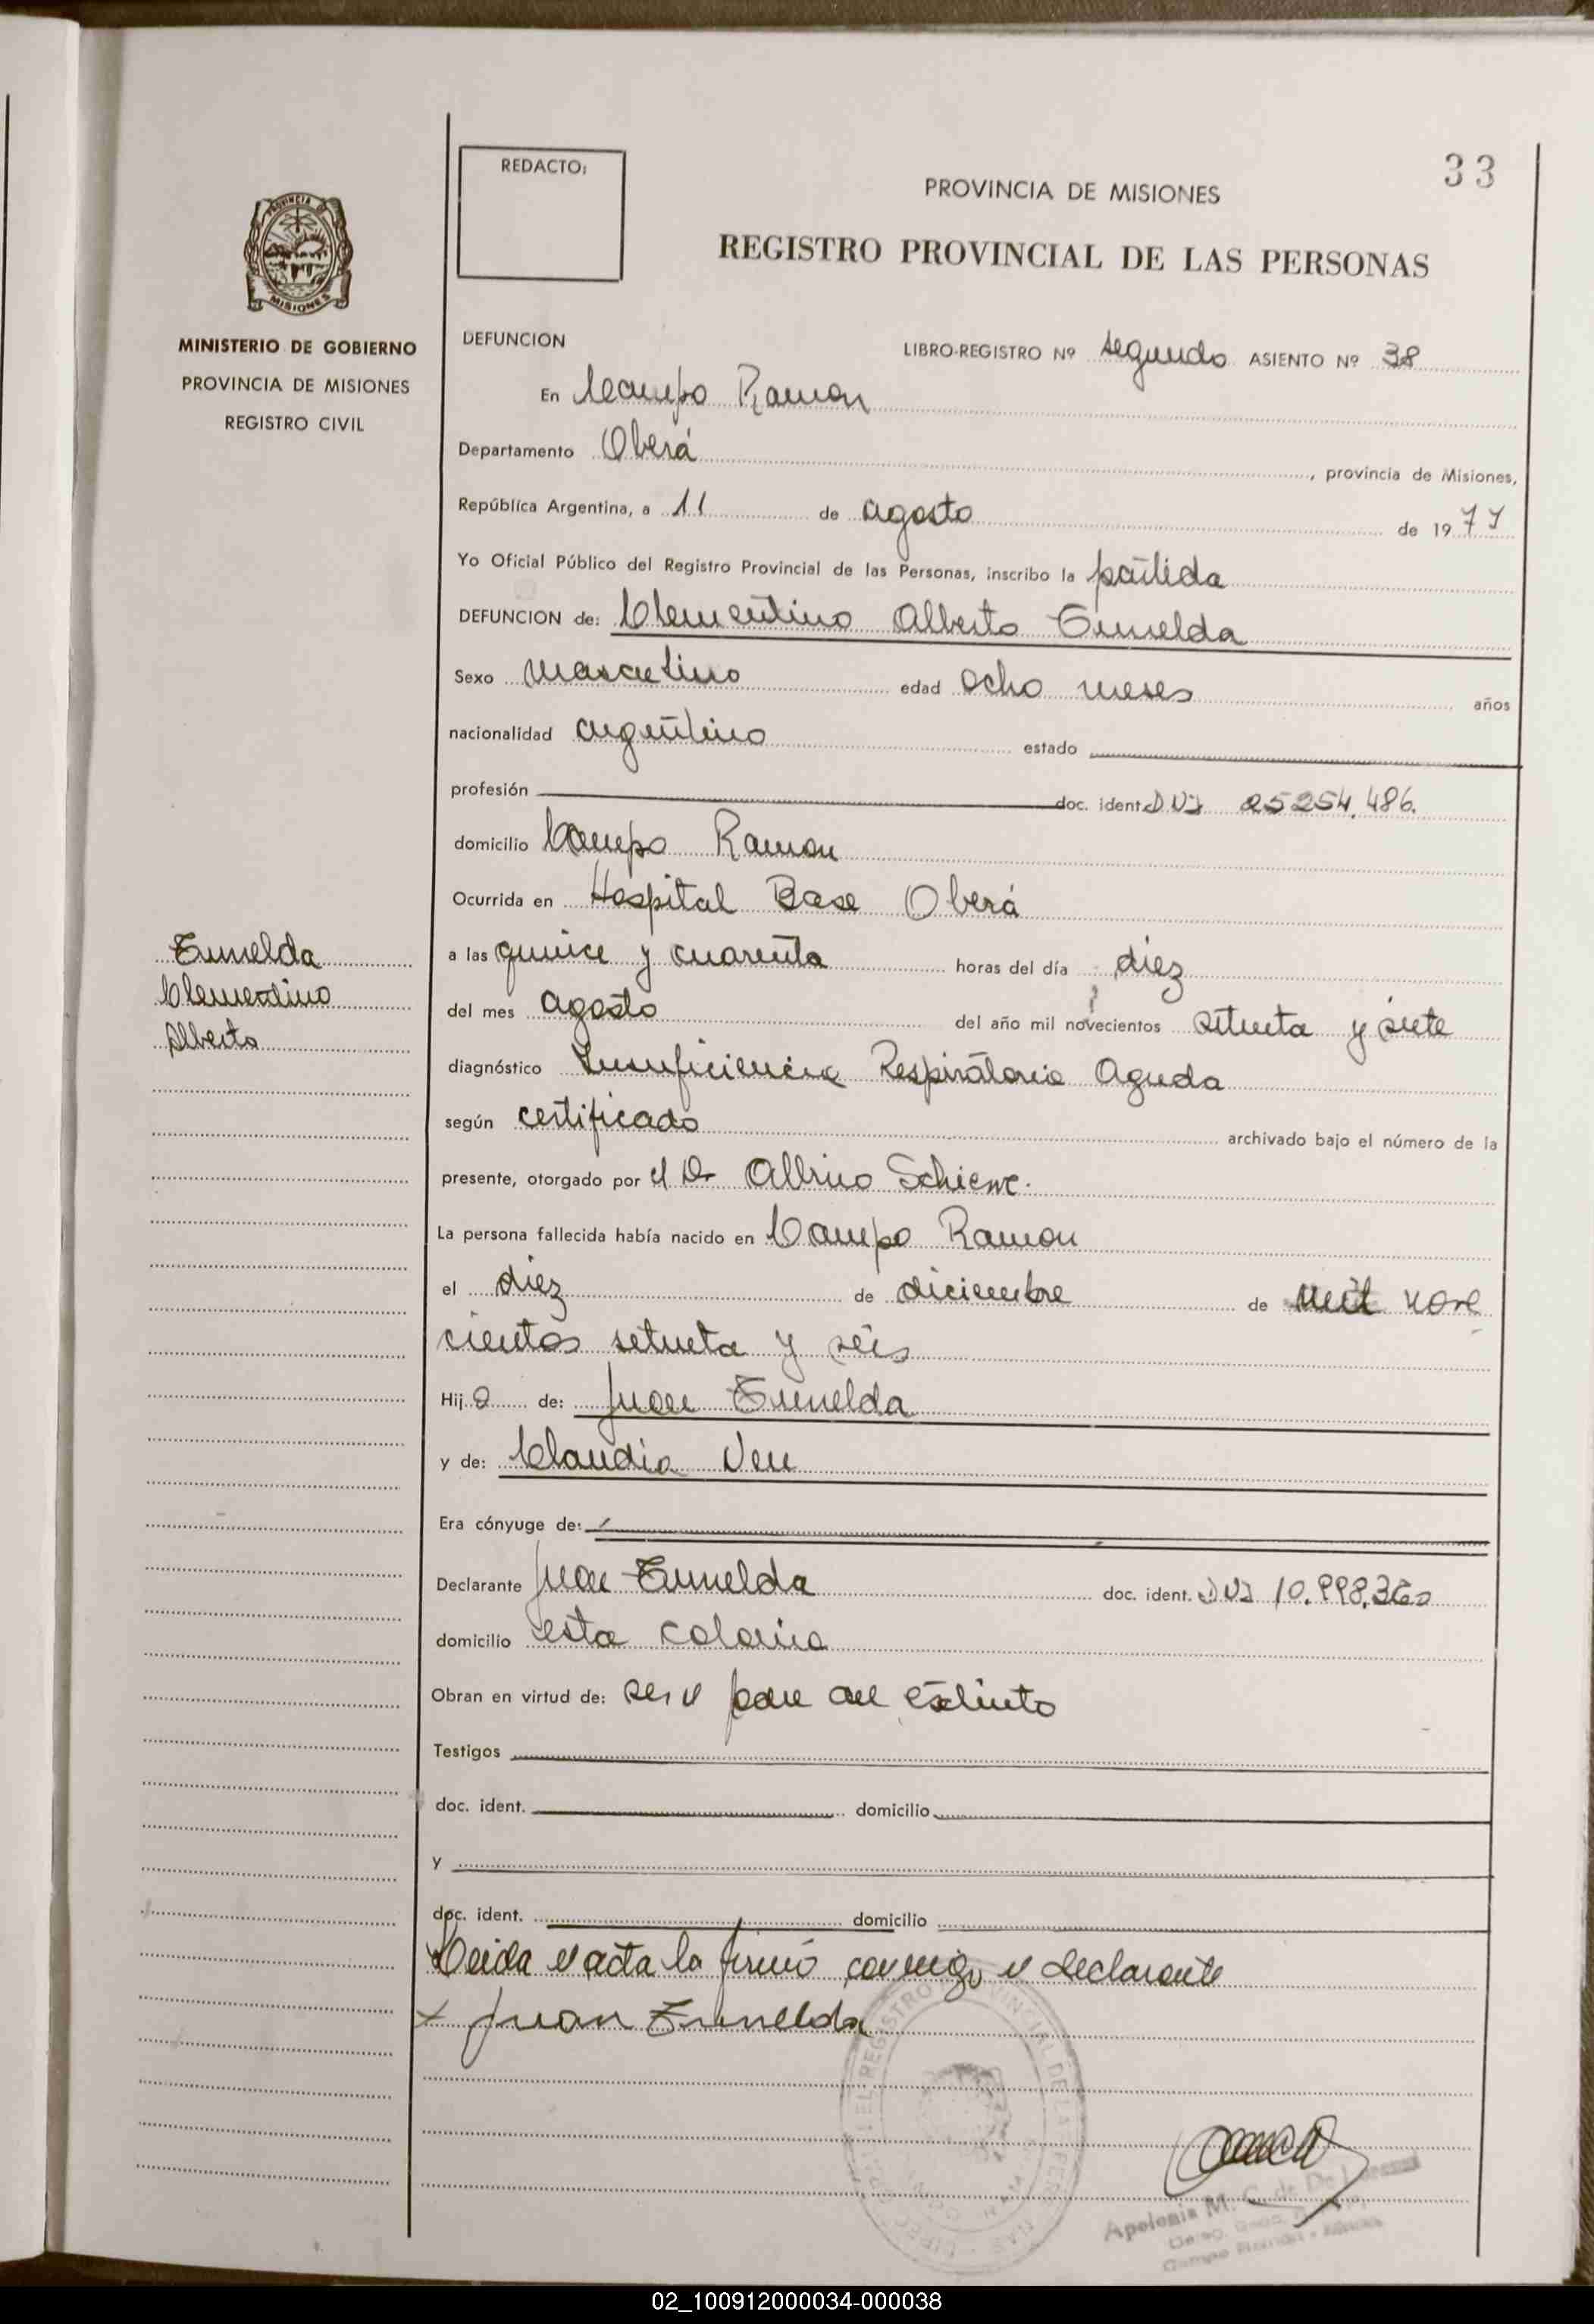 33
REDACTO:
PROVINCIA DE MISIONES
REGISTRO PROVINCIAL DE LAS PERSONAS
PROVINCIA DE
MISIONES
MINISTERIO DE GOBIERNO
PROVINCIA DE MISIONES
REGISTRO CIVIL
DEFUNCION
LIBRO-REGISTRO Nº segundo ASIENTO Nº 38
En Campo Ramon
Departamento Oberá , provincia de Misiones,
República Argentina, a 11 de agosto de 1977
Yo Oficial Público del Registro Provincial de las Personas, inscribo la
DEFUNCION de: Clementino Alberto
Sexo masculino edad ocho meses años
nacionalidad argentino estado
profesión doc. ident. DNI 25254.486.
domicilio Campo Ramon
Ocurrida en Hospital Base Oberá
Clementino
Alberto
a las quince y cuarenta horas del día diez
del mes agosto del año mil novecientos setenta y siete
diagnóstico Insuficiencia Respiratoria Aguda
según certificado archivado bajo el número de la
presente, otorgado por el Dr Albino
La persona fallecida había nacido en Campo Ramon
el diez de diciembre de mil nove
cientos setenta y seis
Hijo de: Juan
y de: Claudia
Era cónyuge de:
Declarante Juan doc. ident. DNI
domicilio esta colonia
Obran en virtud de: ser el padre del extinto
Testigos
doc. ident. domicilio
y
doc. ident. domicilio
Leida el acta la firmó conmigo el declarante
x Juan
REGISTRO PROVINCIAL DE LA
Apolonia M. C. de De
02_100912000034-000038